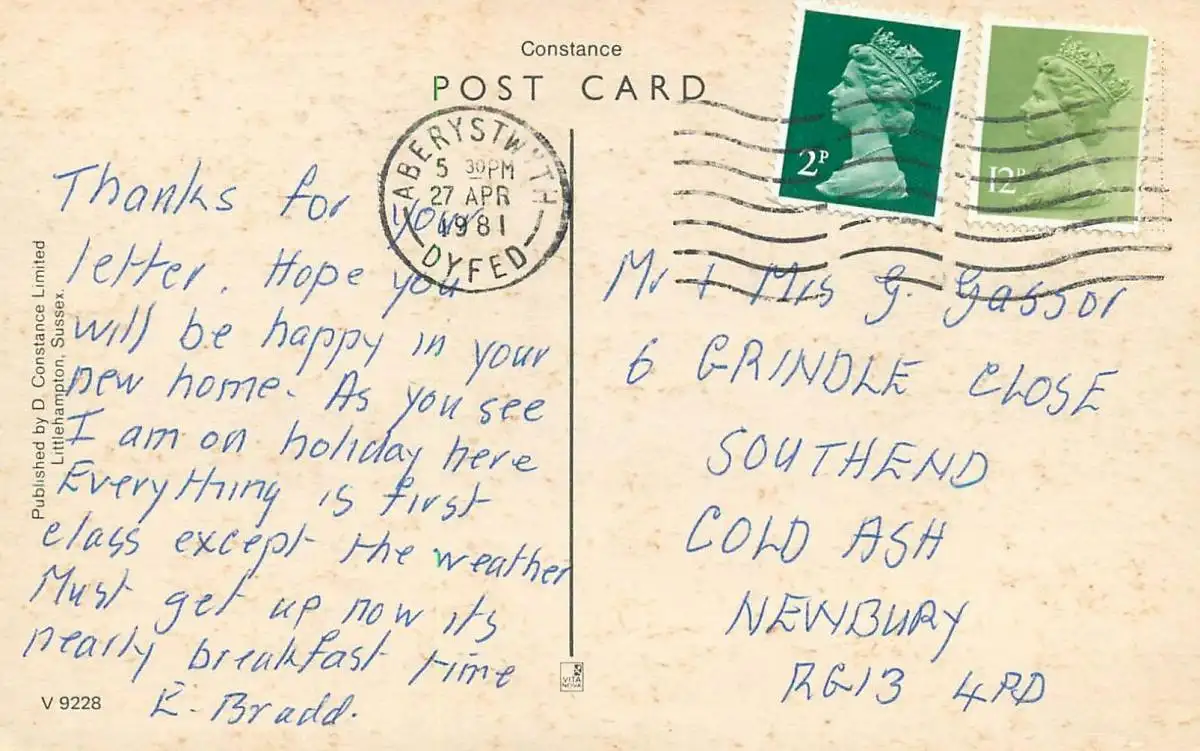 Constance
POST CARD
2P
12P
ABERYSTWYTH
5 30PM
27 APR
1981
DYFED
Thanks for your
letter. Hope you
will be happy in your
new home. As you see
I am on holiday here
Everything is first
class except the weather
Must get up now its
nearly breakfast time
E. Bradd.
Mr + Mrs G. Gassor
6 GRINDLE CLOSE
SOUTHEND
COLD ASH
NEWBURY
RG13 4PD
Published by D. Constance Limited
Littlehampton, Sussex.
V 9228
VITA
NOVA